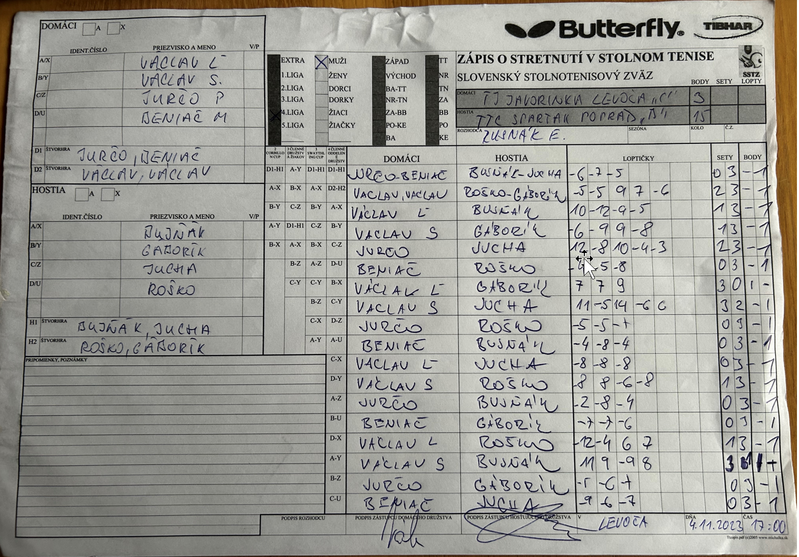 DOMÁCI A X
Butterfly. TIBHAR
IDENT.ČÍSLO PRIEZVISKO A MENO V/P
A/X VACLAV L
B/Y VACLAV S.
C/Z JURČO P
D/U BENIAČ M
EXTRA MUŽI ZÁPAD TT
1.LIGA ŽENY VÝCHOD NR
2.LIGA DORCI BA-TT TN
3.LIGA DORKY NR-TN ZA
4.LIGA ŽIACI ZA-BB BB
5.LIGA ŽIAČKY PO-KE PO
BA KE
ZÁPIS O STRETNUTÍ V STOLNOM TENISE
SLOVENSKÝ STOLNOTENISOVÝ ZVÄZ SSTZ
BODY SETY LOPTY
DOMÁCI TJ JAVORINKA LEVOČA "C" 3
HOSTIA TTC SPARTAK POPRAD "B" 15
ROZHODCA ZUSNÁK E. SEZÓNA KOLO Č.Z.
D1 ŠTVORHRA JURČO, BENIAČ
D2 VACLAV, VACLAV
HOSTIA A X
IDENT.ČÍSLO PRIEZVISKO A MENO V/P
A/X BUJŇÁK
B/Y GÁBORÍK
C/Z JUCHA
D/U ROŠKO
H1 ŠTVORHRA BUJŇÁK, JUCHA
H2 ŠTVORHRA ROŠKO, GÁBORÍK
PRIPOMIENKY, POZNÁMKY
DOMÁCI HOSTIA LOPTIČKY SETY BODY
D1-H1 A-Y D1-H1 D1-H1 JURČO-BENIAČ BUJŇÁK-JUCHA -6 -7 -5 0 3 - 1
A-X B-X A-X D2-H2 VACLAV, VACLAV ROŠKO-GÁBORÍK -5 -5 9 7 -6 2 3 - 1
B-Y C-Z B-Y A-X VACLAV L BUJŇÁK 10 -12 -9 -5 1 3 - 1
A-Y D1-H1 C-Z B-Y VACLAV S GÁBORÍK -6 -9 9 -8 1 3 - 1
B-X A-X B-X C-Z JURČO JUCHA 12 -8 10 -4 -3 2 3 - 1
B-Z A-Z D-U BENIAČ ROŠKO -5 -8 0 3 - 1
C-Y C-Y B-X VACLAV L GÁBORÍK 7 7 9 3 0 1 -
B-Z C-Y VACLAV S JUCHA 11 -5 14 -6 6 3 2 - 1
C-X D-Z JURČO ROŠKO -5 -5 0 3 - 1
A-Y A-U BENIAČ BUJŇÁK -4 -8 -4 0 3 - 1
C-X VACLAV L JUCHA -8 -8 -8 0 3 - 1
D-Y VACLAV S ROŠKO 8 8 -6 -8 1 3 - 1
A-Z JURČO BUJŇÁK -2 -8 -4 0 3 - 1
B-U BENIAČ GÁBORÍK -7 -7 -6 0 3 - 1
D-X VACLAV L ROŠKO -12 -4 6 7 1 3 - 1
A-Y VACLAV S BUJŇÁK 11 9 -9 8 3 1 1 -
B-Z JURČO GÁBORÍK -5 -6 -7 0 3 - 1
C-U BENIAČ JUCHA -9 -6 -7 0 3 - 1
PODPIS ROZHODCU PODPIS ZÁSTUPCU DOMÁCEHO DRUŽSTVA PODPIS ZÁSTUPCU HOSŤUJÚCEHO DRUŽSTVA V LEVOČA DŇA 4.11.2023 ČAS 17:00